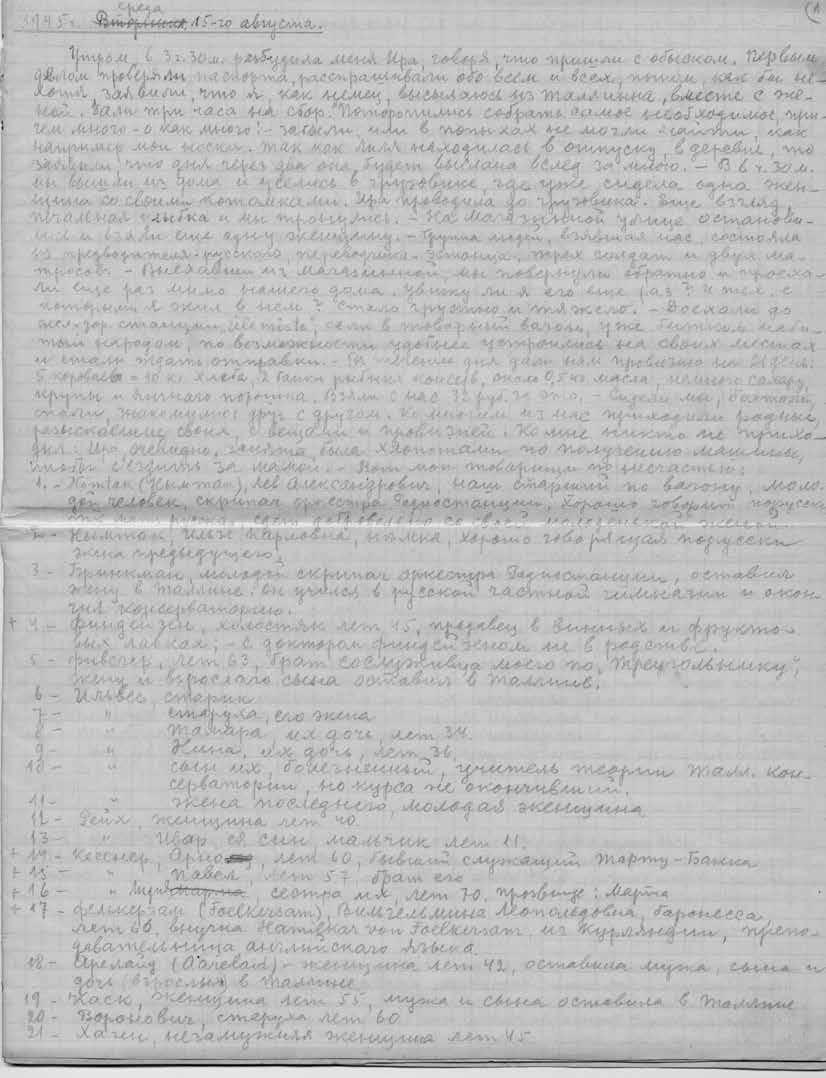 (1
среда
1945г. Вторник, 15-го августа.
Утром в 3 ч. 30 м. разбудила меня Ира, говоря, что пришли с обыском. Первым
делом проверяли паспорта, расспрашивали обо всем и всех, потом, как бы не-
хотя, заявили, что я, как немец, высылаюсь из Таллинна, вместе с же-
ной. Дали три часа на сбор. Поторопились собрать самое необходимое, при-
чем много - о как много! - забыли, или в попыхах не могли найти, как
например мои носки. Так как Лиля находилась в отпуску, в деревне, то
заявили, что дня через два она будет выслана вслед за мною. - В 6 ч. 30 м.
мы вышли из дома и уселись в грузовике, где уже сидела одна жен-
щина со своими котомками. Ира проводила до грузовика. Еще взгляд,
печальная улыбка и мы тронулись. - На Магазинной улице останови-
лись и взяли еще одну женщину. - Группа людей, взявшая нас, состояла
из предводителя-русского, переводчика-эстонца, трех солдат и двух ма-
тросов. - Выехавши из Магазинной, мы повернули обратно и проеха-
ли еще раз мимо нашего дома. Увижу ли я его еще раз? И тех, с
которыми я жил в нем? Стало грустно и тяжело. - Доехали до
жел. дор. станции Ülemiste, сели в товарный вагон, уже битком наби-
тый народом, по возможности удобнее устроились на своих местах
и стали ждать отправки. - В течение дня дали нам провизию на дней:
5 караваев = 10 кг. хлеба, 2 банки рыбных консерв, около 0,5 кг масла, немного сахару,
крупы и яичного порошка. Взяли с нас 32 руб. за это. - Сидели мы, болтали,
спали, знакомились друг с другом. Ко многим из нас приходили родные,
разыскавшие своих, с вещами и провизией. Ко мне никто не прихо-
дил: Ира, очевидно, занята была хлопотами по получению машины,
чтобы съездить за мамой. - Вот мои товарищи по несчастью:
1. - (Нымтак), Лев Александрович, наш старший по вагону, моло-
дой человек, скрипач оркестра Радиостанции, хорошо говорит порусски
едет добровольно со своей молоденькой женой.
2 - Нымтак, Карловна, немка, хорошо говорящая порусски
жена предыдущего.
3 - Бринкман, молодой скрипач оркестра Радиостанции, оставил
жену в Таллине. Он учился в русской частной гимназии и окон-
чил консерваторию.
+ 4 - Финдейзен, холостяк лет 45, продавец в винных и фрукто-
вых лавках; - с доктором Финдейзеном не в родстве.
5 - лет 63, брат сослуживца моего по „Треугольнику",
жену и взрослого сына оставил в Таллине.
6 - Ильвес, старик
7 - " старуха, его жена
8 - " Тамара, их дочь, лет 34.
9 - " Нина, их дочь, лет 36.
10 - " сын их, болезненный, учитель теории Талл. кон-
серватории, но курса не окончивший.
11 - " жена последнего, молодая женщина
12 - Рейх, женщина лет 40.
13 - " Ивар, ея сын, мальчик лет 11.
+ 14 - Кесснер, Арно, лет 60, бывший служащий Тарту-Банка
+ 15 - " Павел, лет 57, брат его
+ 16 - " сестра их, лет 70, прозвище: Марта
+ 17 - Фелькерзам (Foelkersam), Вильгельмина Леопольдовна, баронесса,
лет 60, внучка Hamilkar von Foelkersam из Курляндии, препо-
давательница английскаго языка.
18 - Арелайд (Aarelaid) - женщина лет 42, оставила мужа, сына и
дочь (взрослых) в Таллине
19 - Каск, женщина лет 55, мужа и сына оставила в Таллине
20 - Воронович, старуха лет 60
21 - Хаген, незамужняя женщина лет 45